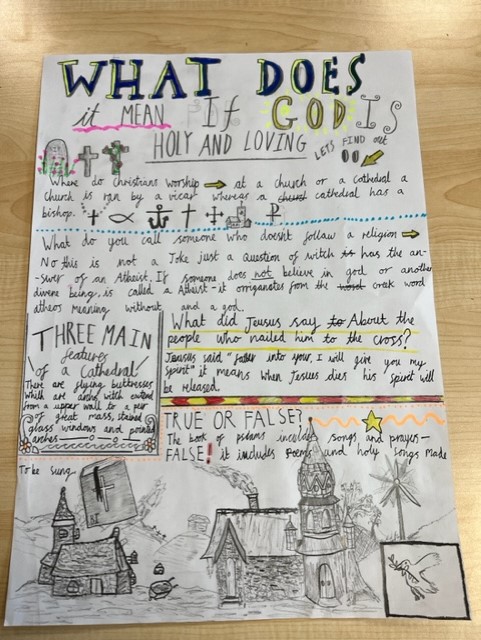 WHAT DOES
it MEAN If GOD IS
HOLY AND LOVING
LETS FIND out
Where do christians worship → at a church or a cathedral a
church is ran by a vicar whereas a church cathedral has a
bishop.
What do you call someone who doesnt follow a religion →
No this is not a Joke just a Question of witch is has the an-
swer of an Atheist. If someone does not believe in god or another
divene being is called a Atheist - it origanates from the word creak word
atheos meaning without and a god.
THREE MAIN
features
of a Cathedral
There are flying buttresses
which are arches witch extend
from a upper wall to a pier
of great mass, stained
glass windows and pointed
arches
What did Jesus say to About the
people who nailed him to the cross?
Jesus said "father into your, I will give you my
spirit" it means when Jesues dies his spirit will
be released.
TRUE OR FALSE?
The book of psalms includes songs and prayers-
FALSE! it includes Poems and holy songs made
To be sung